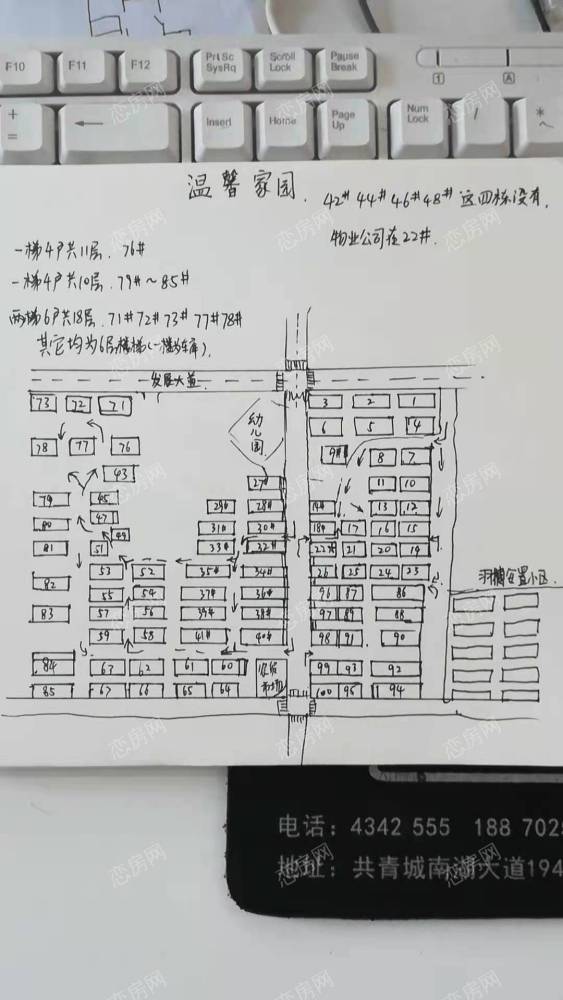 F10
F11
F12
Prt Sc
SysRq
Scroll
Lock
Pause
Break
1
A
+
=
Insert
Home
Page
Up
Num
Lock
/
*
温馨家园.
42# 44# 46# 48# 这四栋没有.
物业公司在22#.
一梯4户共11层. 76#
一梯4户共10层. 79#~85#
两梯6户共18层. 71# 72# 73# 77# 78#
发展大道
73 72 71
3 2 1
幼儿园
6 5 4
78 77 76
9# 8 7
43
27#
11 10
79 45
29# 28#
19# 13 12
80 47
31# 30#
18# 17 16 15
49
81 51
33# 32#
22# 21 20 19
53 52 35# 34#
26 25 24 23
82
55 54 37# 36#
96 87 86
83
57 56 39# 38#
97 89 88
59 58 41# 40#
98 91 90
84 63 62 61 60
99 93 92
85 67 66 65 64
100 95 94
电话: 4342 555 188 7025
地址: 共青城南湖大道194
恋房网